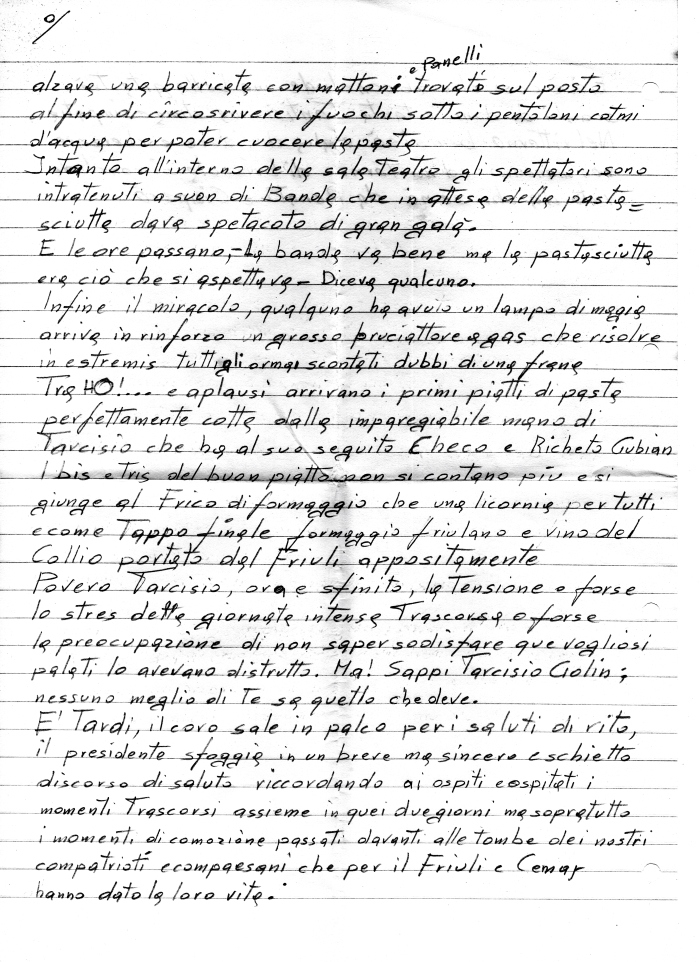 9/
e Panelli
alzare una barricata con mattoni trovati sul posto
al fine di circosrivere i fuochi sotto i pentoloni colmi
d'acqua per poter cuocere la pasta
Intanto all'interno della sala Teatro gli spettatori sono
intratenuti a suon di Banda che in attesa della pasta=
sciutta dava spetacolo di gran galà.
E le ore passano,- La banda va bene ma la pastasciutta
era ciò che si aspettava - Diceva qualcuno.
Infine il miracolo, qualquno ha avuto un lampo di magia
arriva in rinforzo un grosso bruciattore a gas che risolve
in estremis tutti gli ormai scontati dubbi di una frana
Tra HO!... e aplausi arrivano i primi piatti di pasta
perfettamente cotta dalla imparegiabile mano di
Tarcisio che ha al suo seguito Checo e Richeto Cubian
I bis e Tris del buon piatto non si contano più e si
giunge al Frico di formaggio che una licornia per tutti
e come Tappa finale formaggio friulano e vino del
Collio portato dal Friuli appositamente
Povero Tarcisio, ora e sfinito, la Tensione o forse
lo stres della giornata intensa Trascorsa o forse
la preocupazione di non saper sodisfare que vogliosi
palati lo avevano distrutto. Ma! Sappi Tarcisio Colin;
nessuno meglio di Te sa quello che deve.
E' Tardi, il coro sale in palco per i saluti di rito,
il presidente sfoggia in un breve ma sincero e schietto
discorso di saluto riccordando ai ospiti e ospitati i
momenti Trascorsi assieme in quei due giorni ma sopratutto
i momenti di comozione passati davanti alle tombe dei nostri
compatrioti e compaesani che per il Friuli e
hanno dato la loro vita.